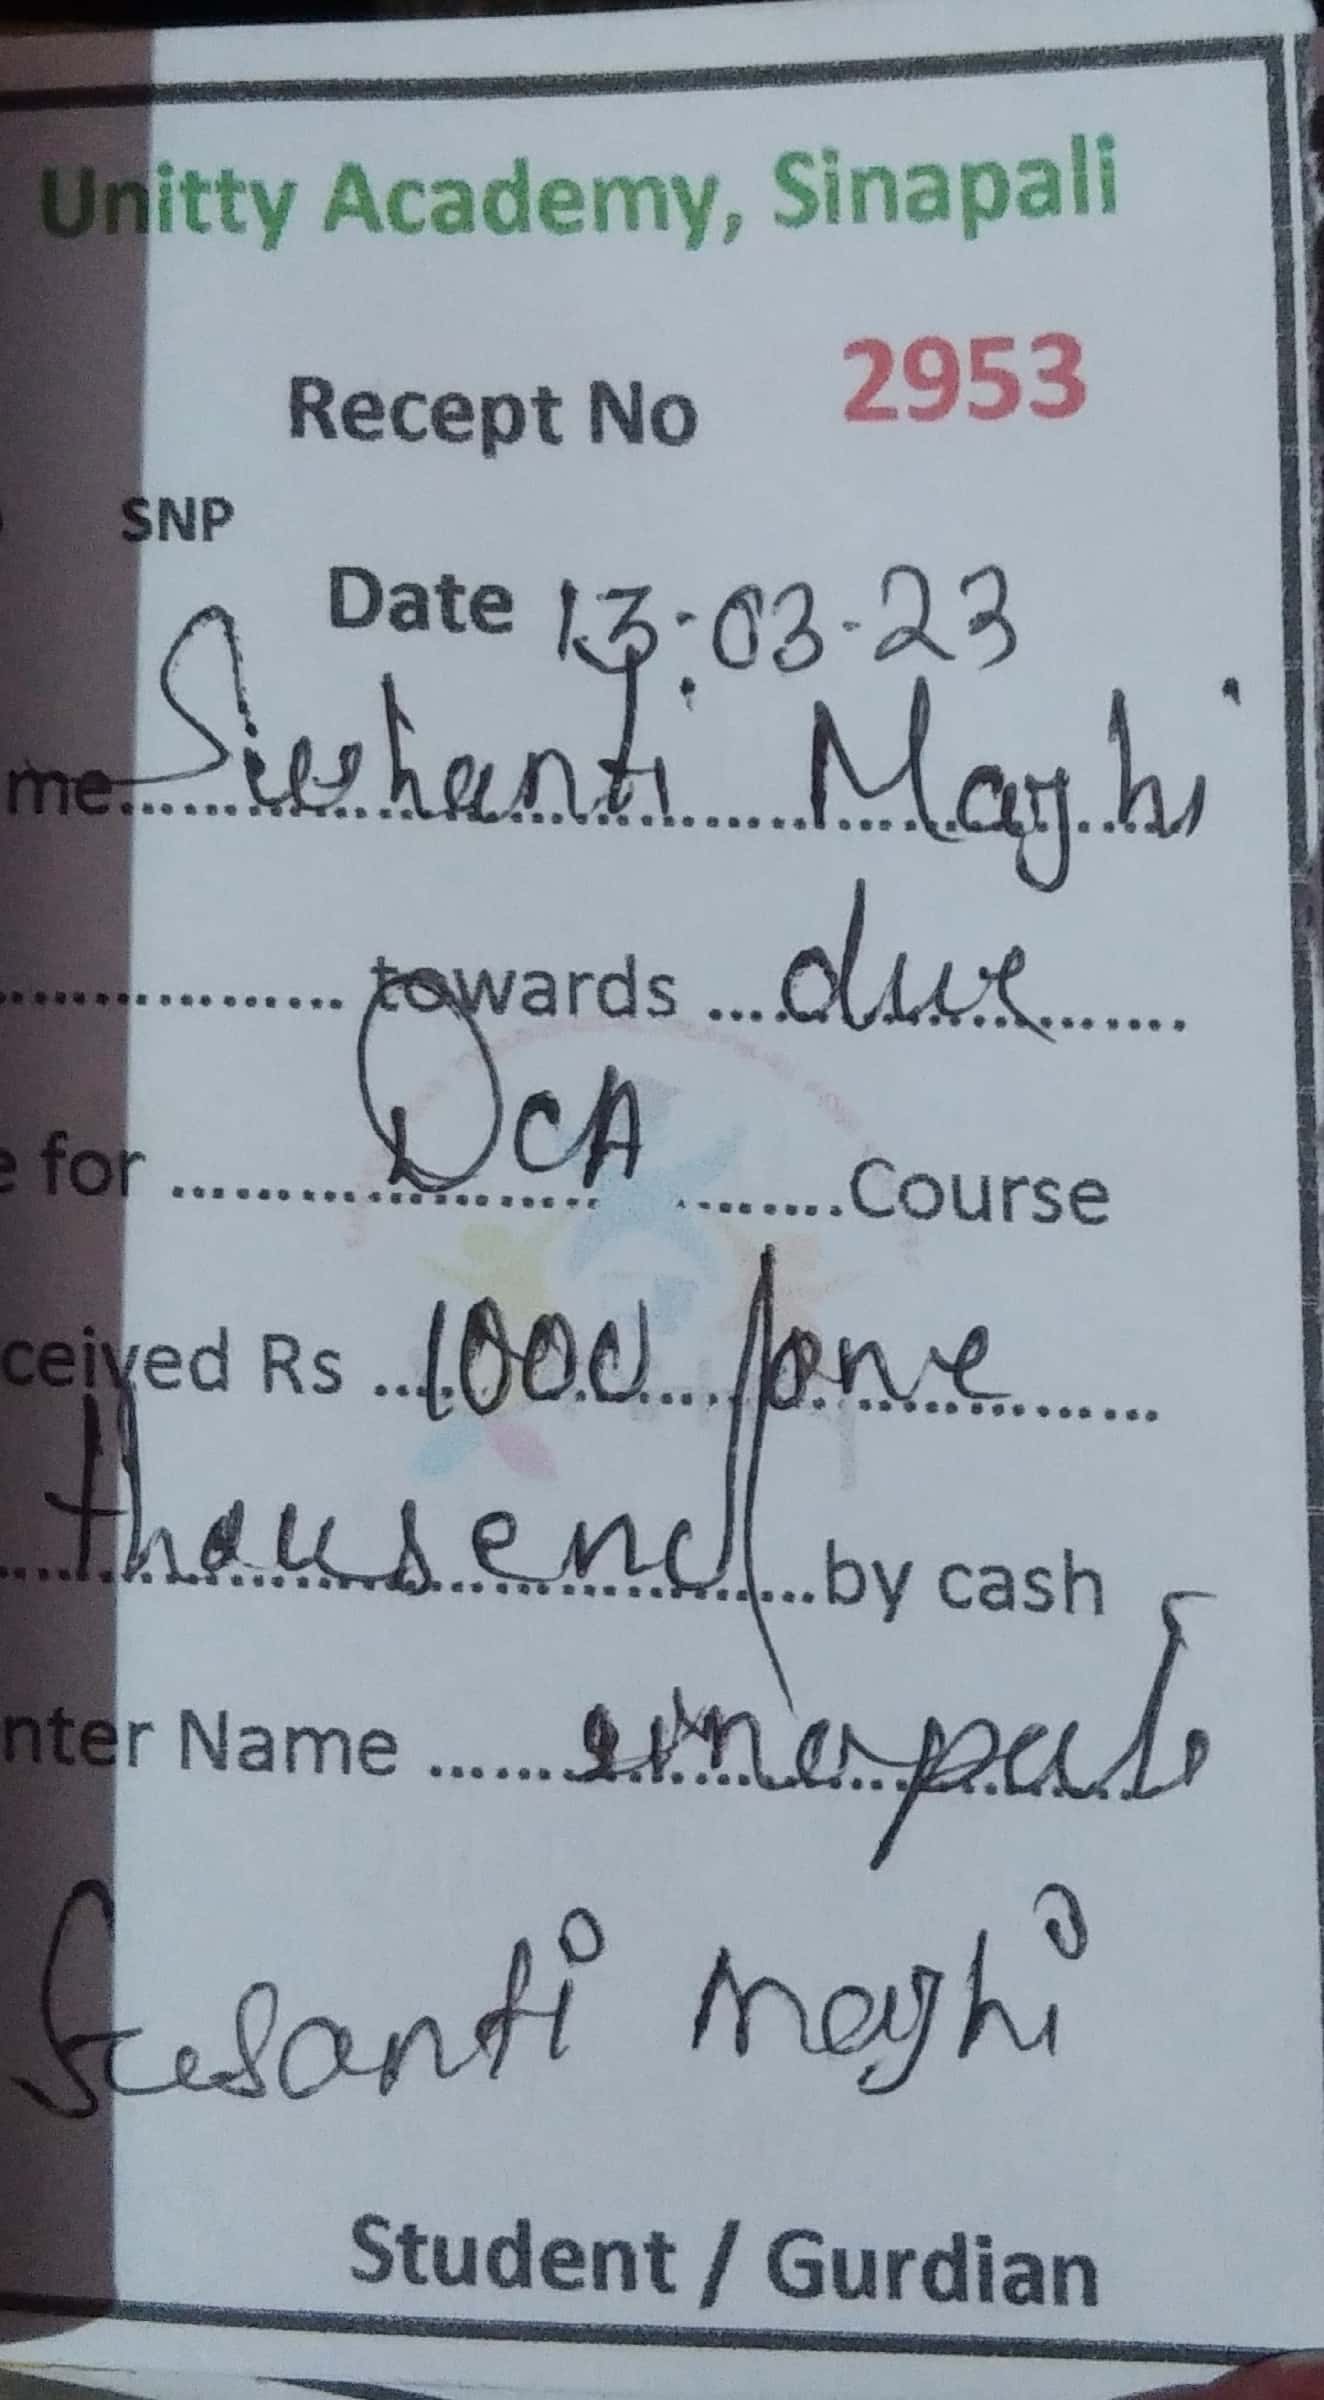 Unitty Academy, Sinapali
Recept No 2953
SNP
Date 13.03.23
me Sushanti Maghi
towards due
e for DCA Course
ceived Rs 1000/one
thousend by cash
nter Name sinapali
Susanti maghi
Student / Gurdian